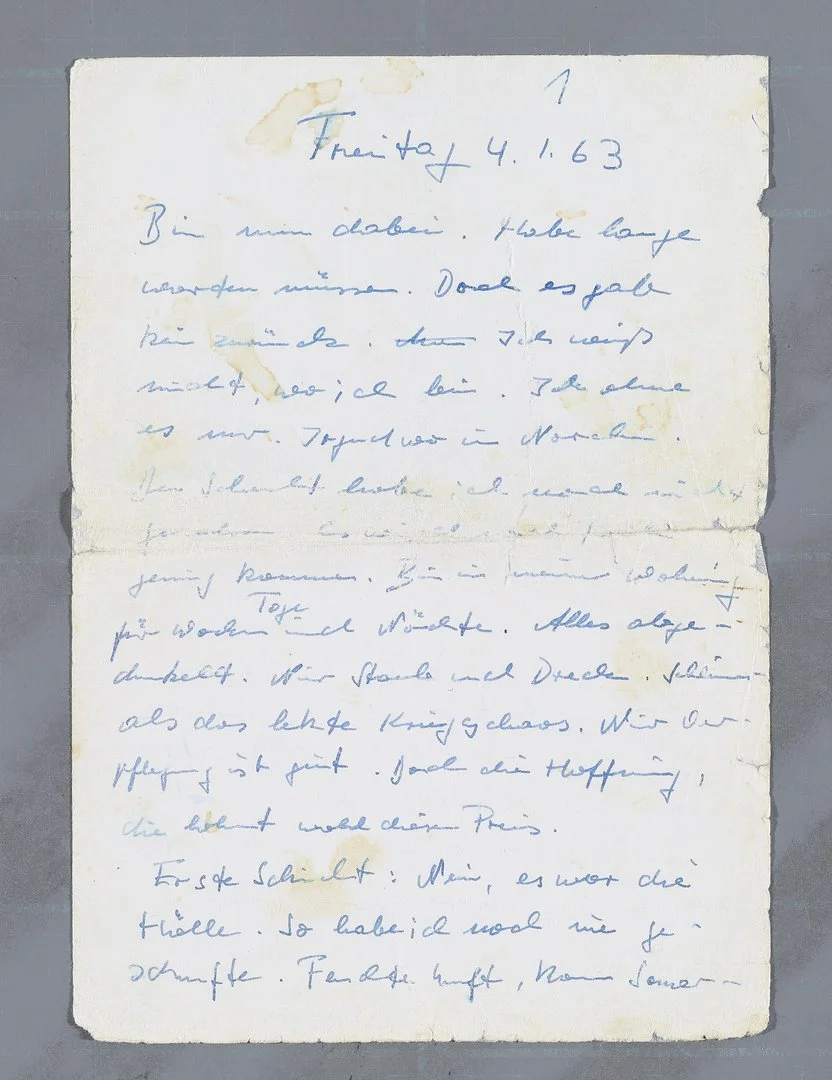 1
Freitag 4.1.63
Bin nun dabei. Habe lange
warten müssen. Doch es gab
kein zurück. Ich weiß
nicht, wo ich bin. Ich ahne
es nur. Irgendwo im Norden.
Den Schacht habe ich noch nicht
gesehen. Es wird noch früh
genug kommen. Bin in meiner Wohnung
Tage
für Wochen und Nächte. Alles abge-
dunkelt. Nur Staub und Dreck. Schlimmer
als das letzte Kriegschaos. Nur Ver-
pflegung ist gut. Doch die Hoffnung,
die lohnt wohl diesen Preis.
Erste Schicht: Nein, es war die
Hölle. So habe ich noch nie ge-
schufte. Feuchte Luft, kaum Sauer-